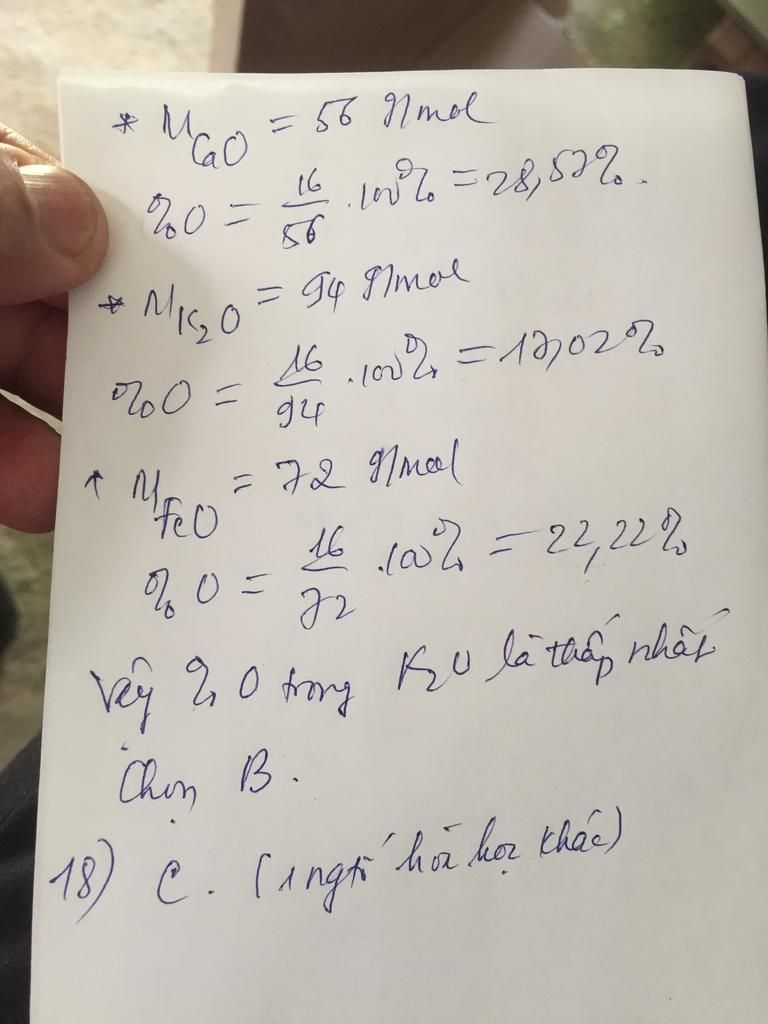 * M_CaO = 56 g/mol
%O = 16/56 .100% = 28,57%.
* M_K2O = 94 g/mol
%O = 16/94 .100% = 17,02%
* M_FeO = 72 g/mol
%O = 16/72 .100% = 22,22%
Vậy % O trong K2O là thấp nhất
Chọn B.
18) C. (1 ngtố hóa học khác)